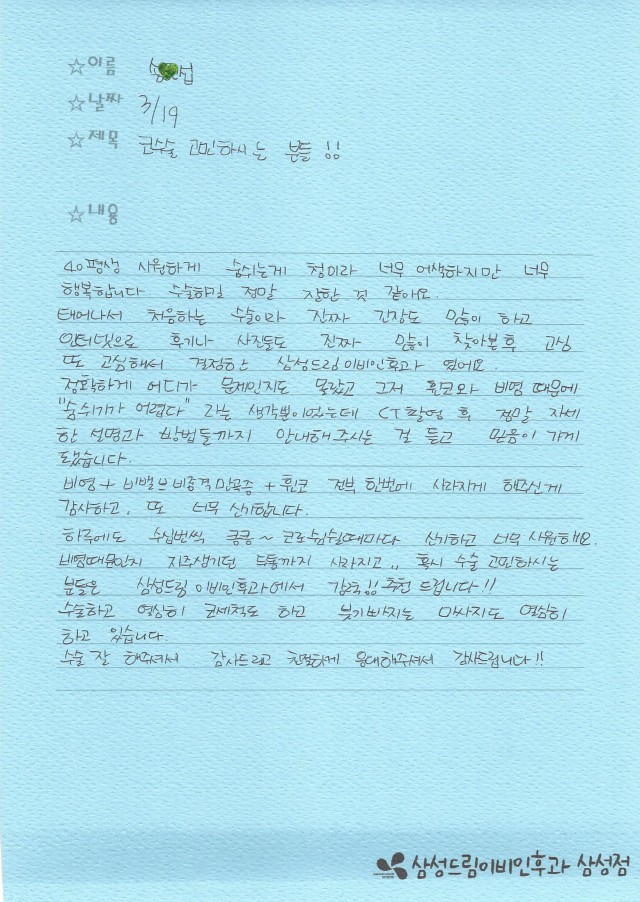 ☆이름 성 섭
☆날짜 3/19
☆제목 코수술 고민하시는 분들 !!
☆내용
40평생 시원하게 숨쉬는게 첨이라 너무 어색하지만 너무
행복합니다 수술하길 정말 잘한 것 같아요.
태어나서 처음하는 수술이라 진짜 긴장도 많이 하고
인터넷으로 후기나 사진들도 진짜 많이 찾아본 후 고심
또 고심해서 결정한 삼성드림이비인후과 였어요.
정확하게 어디가 문제인지도 몰랐고 그저 휜코와 비염 때문에
"숨쉬기가 어렵다" 라는 생각뿐이었는데 CT촬영 후 정말 자세
한 설명과 방법들까지 안내해 주시는 걸 듣고 믿음이 가게
됐습니다.
비염 + 비밸브비중격만곡증 + 휜코 전부 한번에 사라지게 해주신게
감사하고, 또 너무 신기합니다.
하루에도 수십번씩 킁킁~ 코로 숨쉴때마다 신기하고 너무 시원해요.
비염때문인지 자주생기던 두통까지 사라지고,, 혹시 수술 고민하시는
분들은 삼성드림이비인후과에서 강추!! 추천 드립니다!!
수술하고 열심히 코세척도 하고 붓기빠지는 마사지도 열심히
하고 있습니다.
수술 잘 해주셔서 감사드리고 친절하게 응대해주셔서 감사드립니다!!
삼성드림이비인후과 삼성점